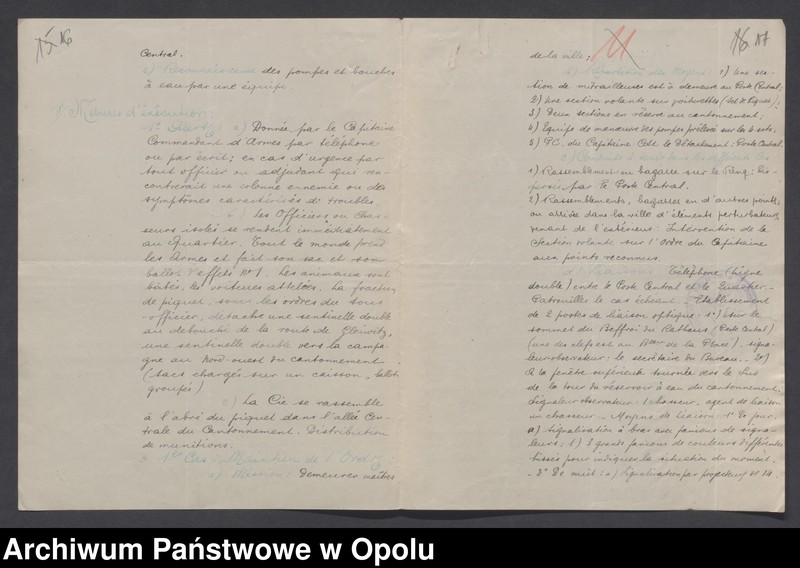 15 16
Central.
c) Reconnaissance des pompes et bouches
à eau par une équipe.
V° Mesures d'exécution:
1° Alerte a) Donnée par le Capitaine
Commandant d'Armes par téléphone
ou par écrit; en cas d'urgence par
tout officier ou adjudant qui ren-
contrerait une colonne ennemie ou des
symptômes caractérisés de troubles.
b) Les Officiers ou Chas-
seurs isolés se rendent immédiatement
au Quartier. Tout le monde prend
les Armes et fait son sac et son
ballot d'effets N°1. Les animaux sont
bâtés, les voitures attelées. La fraction
de piquet, sous les ordres du sous
-officier, détache une sentinelle double
au débouché de la route de Gleiwitz,
une sentinelle double vers la campa-
gne au Nord-ouest du cantonnement
(Sacs chargés sur un caisson, ballots
groupés)
c) La Cie se rassemble
à l'abri du piquet dans l'allée Cen-
trale du Cantonnement. Distribution
de munitions.
1er Cas: Maintien de l'Ordre:
a) Mission: Demeurer maîtres
11
16 17
de la ville;
b) Répartition des Moyens: 1) Une sec-
tion de mitrailleuses est à demeure au Poste Central;
2) Une section volante sur voiturettes
3) Deux sections en réserve au cantonnement;
4) Equipe de manœuvre des pompes prélevée sur les 4 sects.
5) P.C. du Capitaine Cdt le Détachement: Poste Central.
1) Rassemblement ou bagarre sur le Ring: Dis-
persés par le Poste Central.
2) Rassemblements, bagarres en d'autres points,
ou arrivée dans la ville d'éléments perturbateurs
venant de l'extérieur: Intervention de la
Section volante sur l'Ordre du Capitaine
aux points reconnus.
d) Liaisons: Téléphone (ligne
double) entre le Poste Central et le Quartier.-
Patrouilles le cas échéant.- Etablissement
de 2 postes de liaison optique: 1°) Sur le
sommet du Beffroi du Rathaus (Poste Central)
(une des clefs est au Bureau de la Place). Signa-
leur observateur: le secrétaire du Bureau.- 2°)
A la fenêtre supérieure tournée vers le Sud
de la tour du réservoir à eau du cantonnement.
Signaleur observateur: 1 chasseur, agent de liaison
un chasseur.- Moyens de liaison: 1° De jour.
a) Signalisation à bras avec fanions de signa-
leurs; b) 3 grands fanions de couleurs différentes
hissés pour indiquer la situation du moment.
- 2° De nuit: a) Signalisation par projecteurs de 14.
Archiwum Państwowe w Opolu